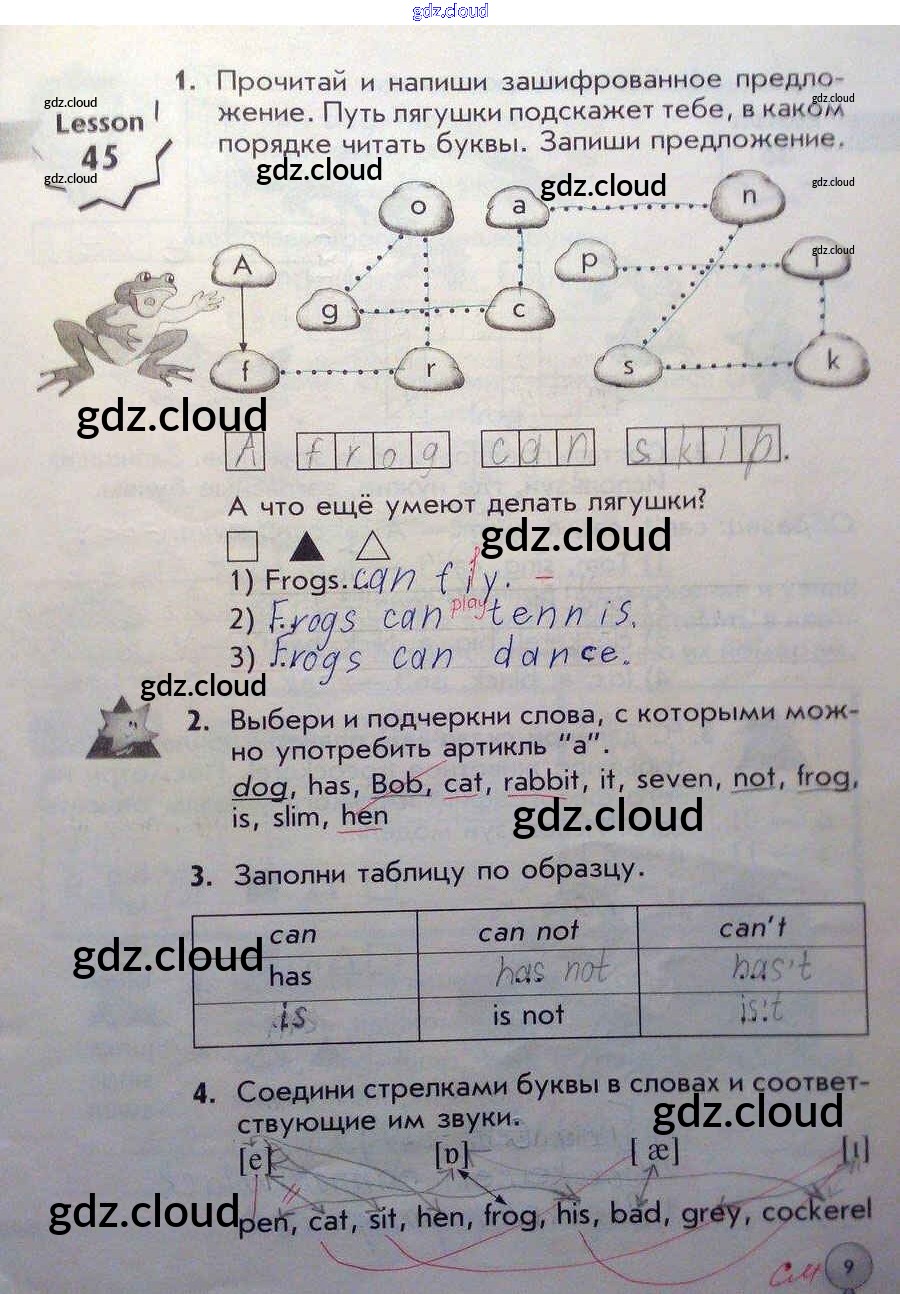 gdz.cloud
1. Прочитай и напиши зашифрованное предло-
жение. Путь лягушки подскажет тебе, в каком
порядке читать буквы. Запиши предложение.
gdz.cloud
gdz.cloud
Lesson
45
gdz.cloud
gdz.cloud
gdz.cloud
gdz.cloud
o a n
A p i
gdz.cloud
g c
f r s k
gdz.cloud
A frog can skip.
А что ещё умеют делать лягушки?
gdz.cloud
1) Frogs..can fly. –
2) Frogs can play tennis.
3) Frogs can dance.
gdz.cloud
2. Выбери и подчеркни слова, с которыми мож-
но употребить артикль “a”.
dog, has, Bob, cat, rabbit, it, seven, not, frog,
is, slim, hen
gdz.cloud
3. Заполни таблицу по образцу.
can can not can't
gdz.cloud
has has not has't
is is not is't
4. Соедини стрелками буквы в словах и соответ-
ствующие им звуки.
gdz.cloud
[e] [ɒ] [æ] [ɪ]
gdz.cloud
pen, cat, sit, hen, frog, his, bad, grey, cockerel
См 9